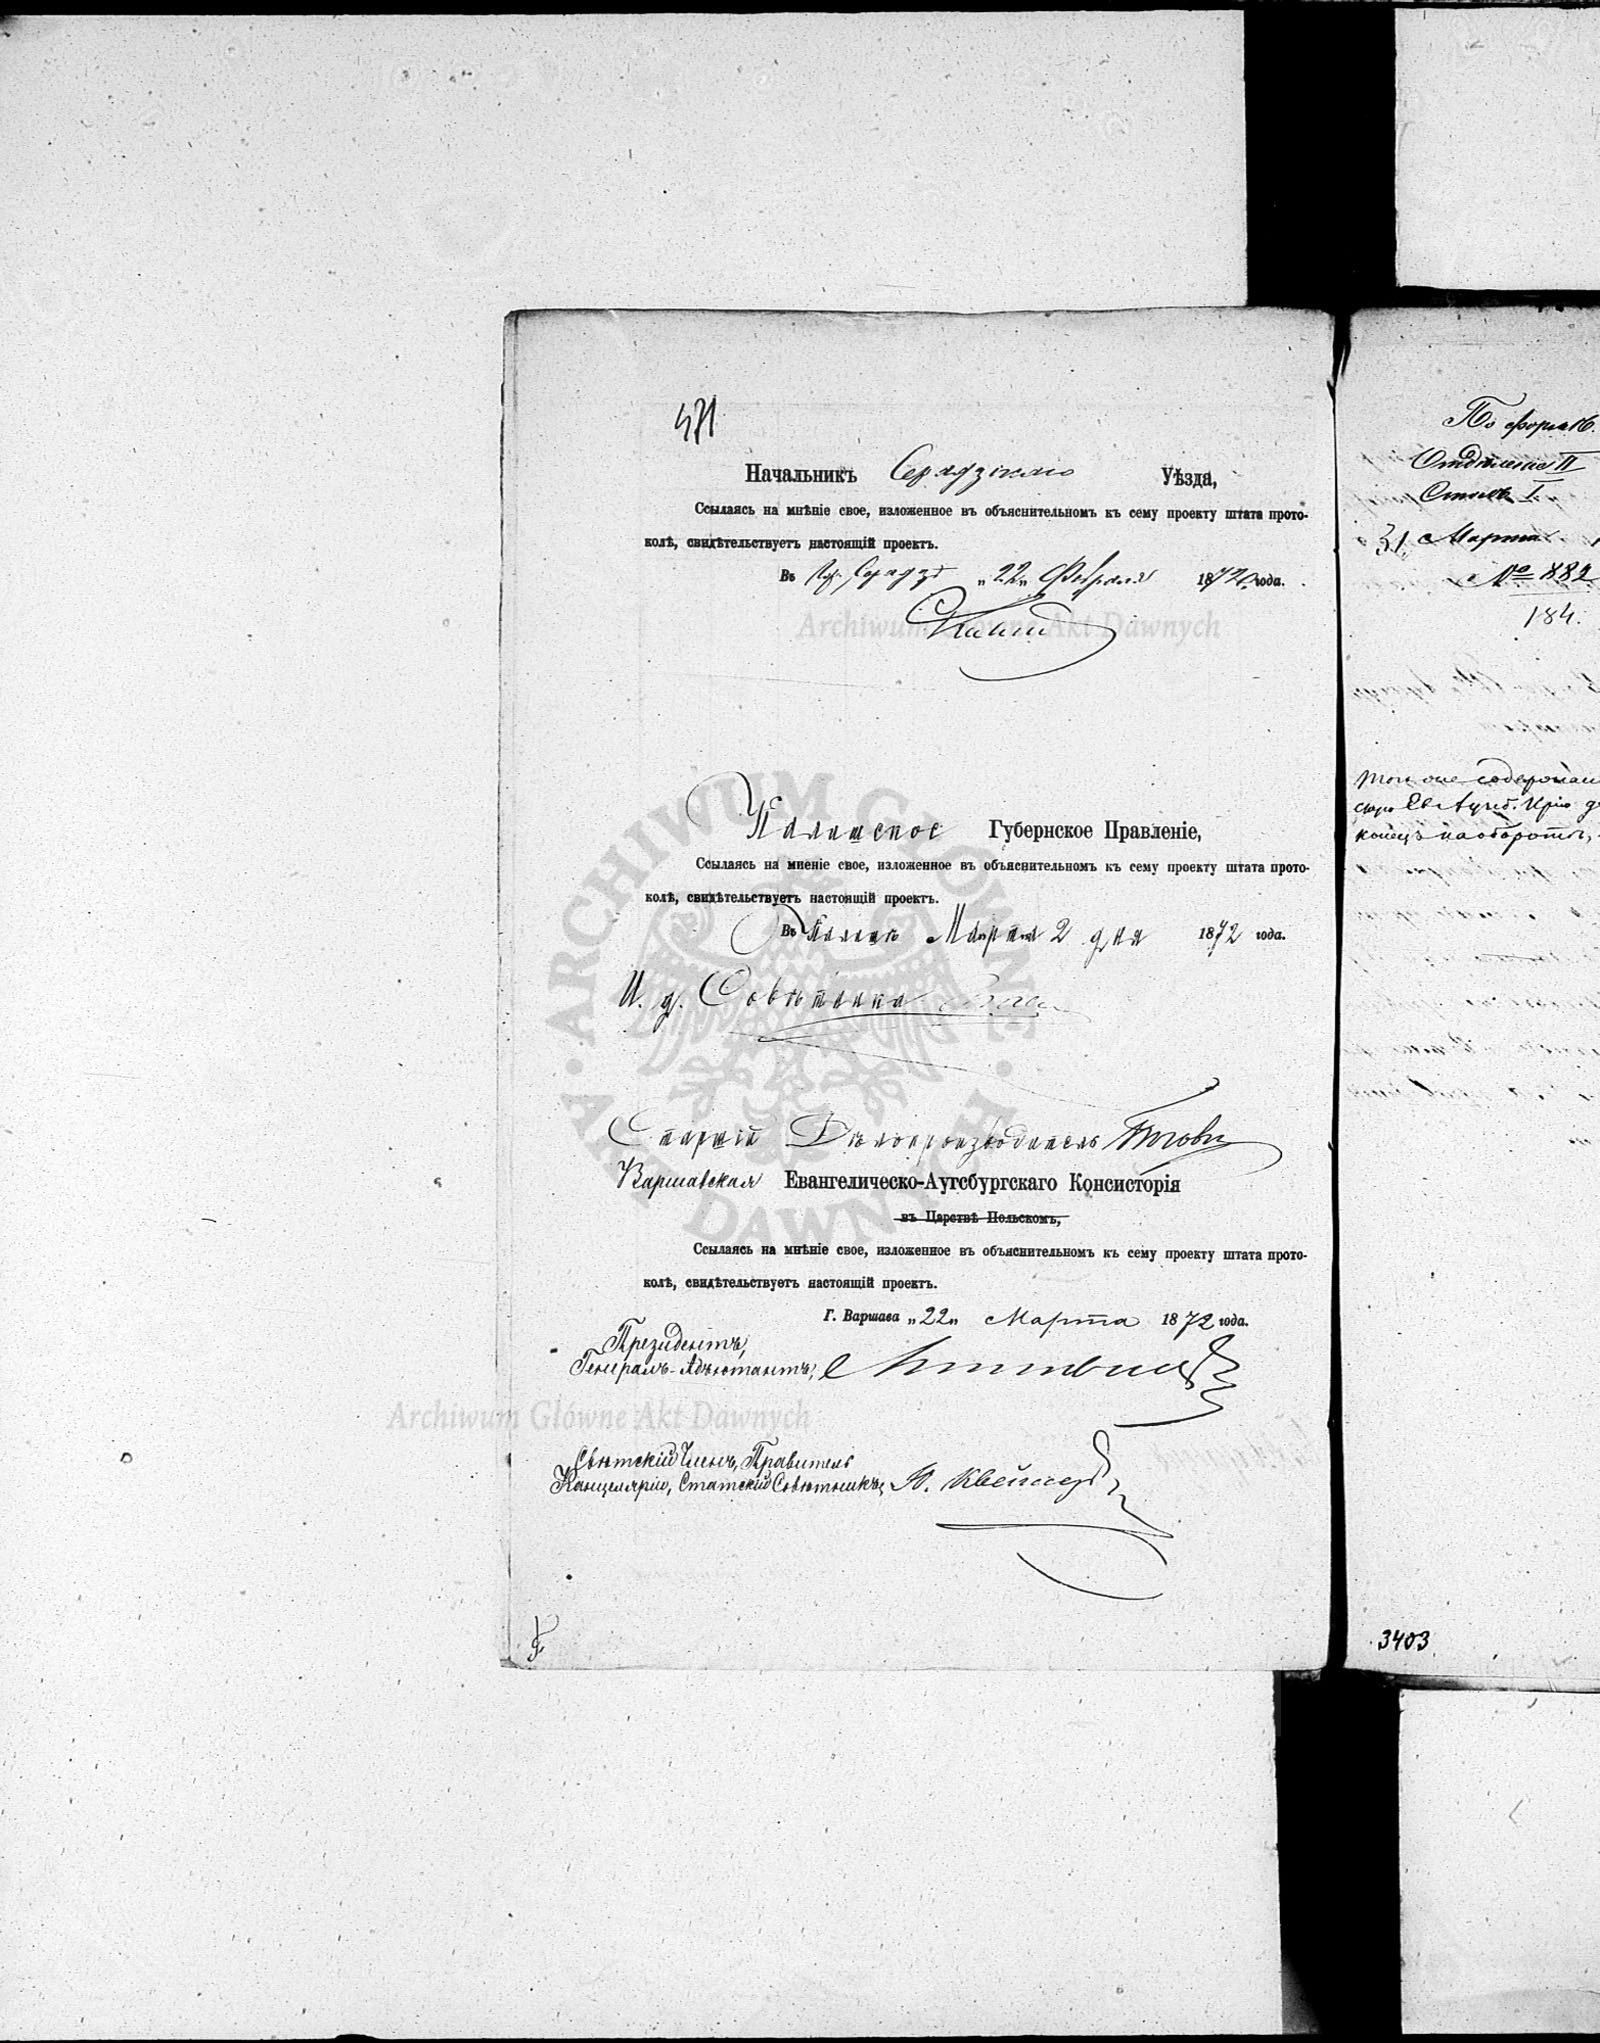 471
Начальникъ Серадзскаго Уѣзда,
Ссылаясь на мнѣніе свое, изложенное въ объяснительномъ къ сему проекту штата прото-
колѣ, свидѣтельствуетъ настоящій проектъ.
Въ Серадзѣ „22„ Февраля 1872 года.
Archiwum Główne Akt Dawnych
Калишское Губернское Правленіе,
Ссылаясь на мненіе свое, изложенное въ объяснительномъ къ сему проекту штата прото-
колѣ, свидѣтельствуетъ настоящій проектъ.
Въ Калишѣ Марта 2 дня 1872 года.
И. д. Совѣтника
ARCHIWUM GŁÓWNE AKT DAWNYCH
Старшій Дѣлопроизводитель
Варшавская Евангелическо-Аугсбургскаго Консисторія
въ Царствѣ Польскомъ,
Ссылаясь на мнѣніе свое, изложенное въ объяснительномъ къ сему проекту штата прото-
колѣ, свидѣтельствуетъ настоящій проектъ.
Г. Варшава „22„ Марта 1872 года.
Президентъ,
Генералъ-Адъютантъ,
Archiwum Główne Akt Dawnych
Свѣтскій Членъ, Правитель
Канцеляріи, Статскій Совѣтникъ,
По форма 16.
Отдѣленіе II
Столъ I
31 Марта
№ 882
184.
содержан
конецъ на оборотѣ,
3403